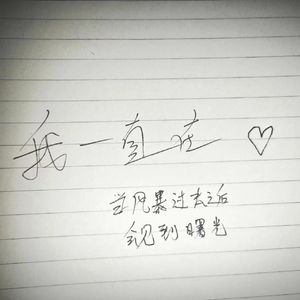 我一直在♡
当风暴过去之后
会见到曙光